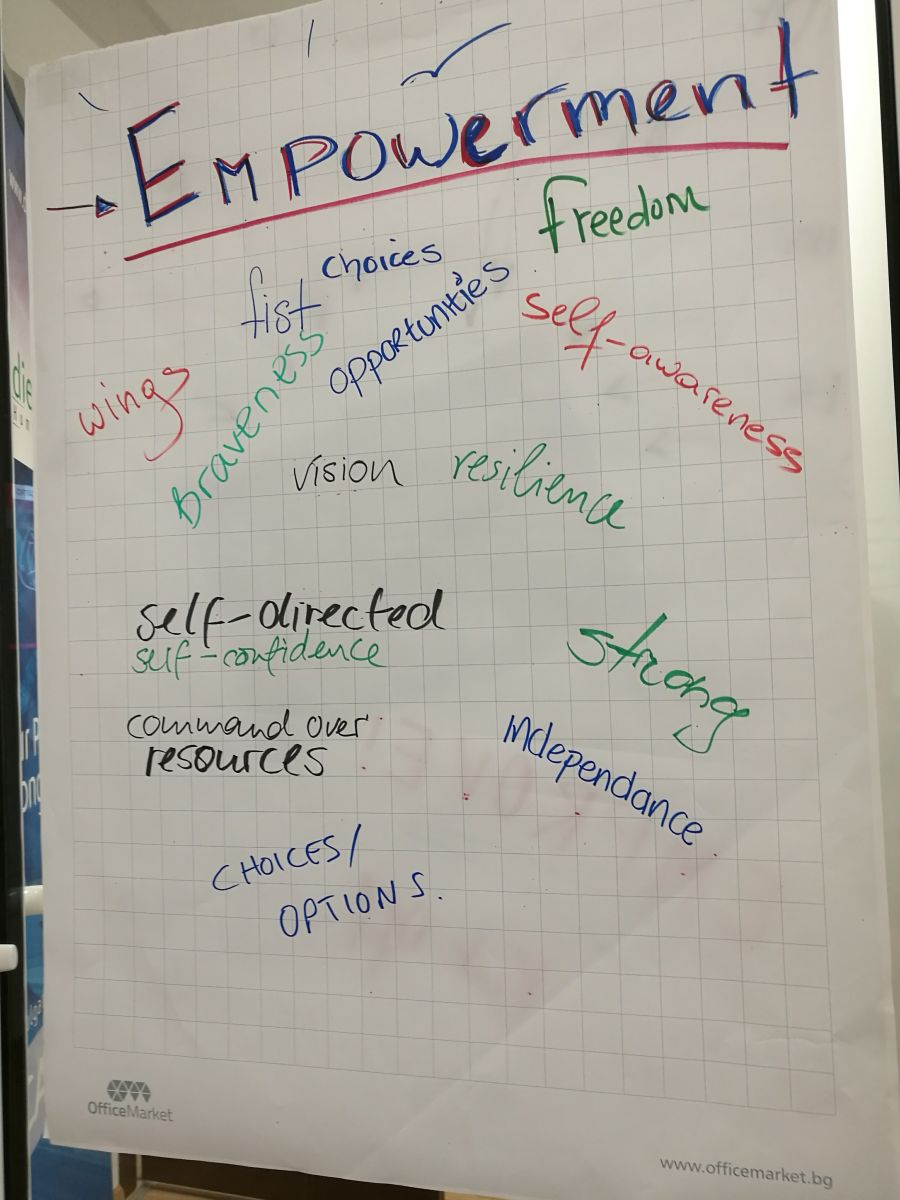 Empowerment
freedom
choices
fist
opportunities
self-awareness
wings
Braveness
vision
resilience
self-directed
self-confidence
strong
command over
resources
Independance
CHOICES/
OPTIONS.
OfficeMarket
www.officemarket.bg
die